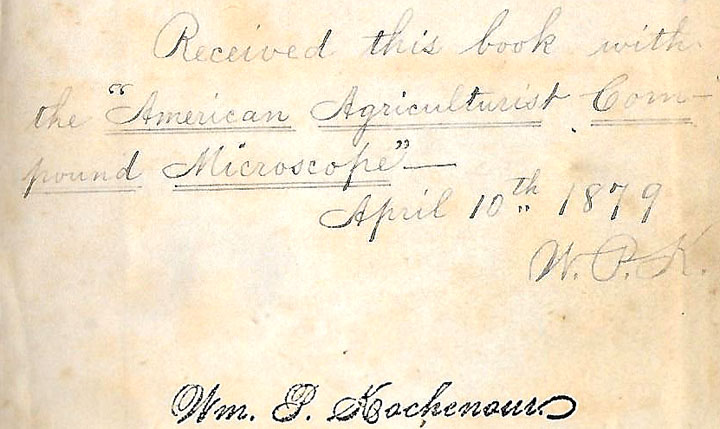 Received this book with
the "American Agriculturist Com-
pound Microscope"—
April 10th 1879
W. P. K.
Wm. P. Kochenour